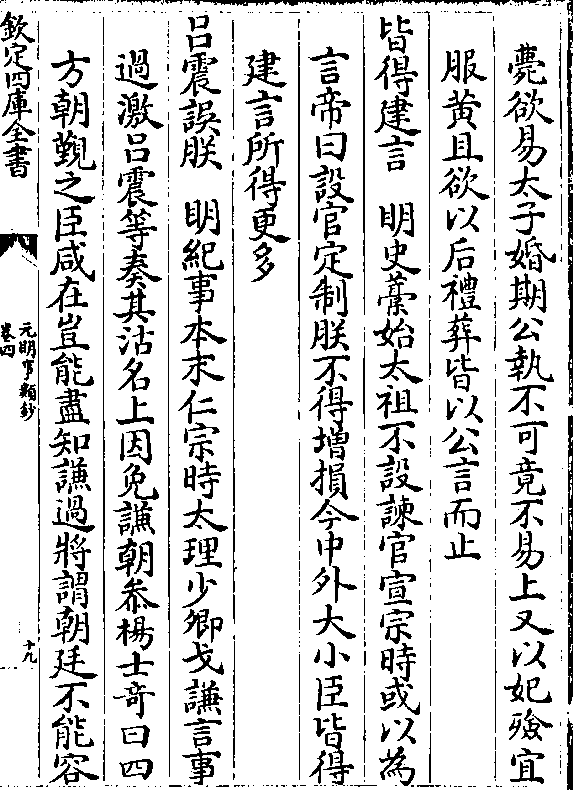 薨欲易太子婚期公執不可竟不易上又以妃殮宜
服黄且欲以后禮葬皆以公言而止
皆得建言　明史藁始太祖不設諫官宣宗時或以為
言帝曰設官定制朕不得增損今中外大小臣皆得
建言所得更多
吕震誤朕　明紀事本末仁宗時太理少卿戈謙言事
過激吕震等奏其沽名上因免謙朝叅楊士竒曰四
方朝覲之臣咸在豈能盡知謙過將謂朝廷不能容
欽定四庫全書
元明事類鈔
卷四
十九